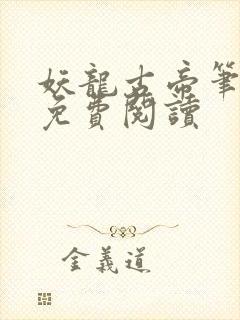 妖龍古帝筆
免費閱讀
金義道